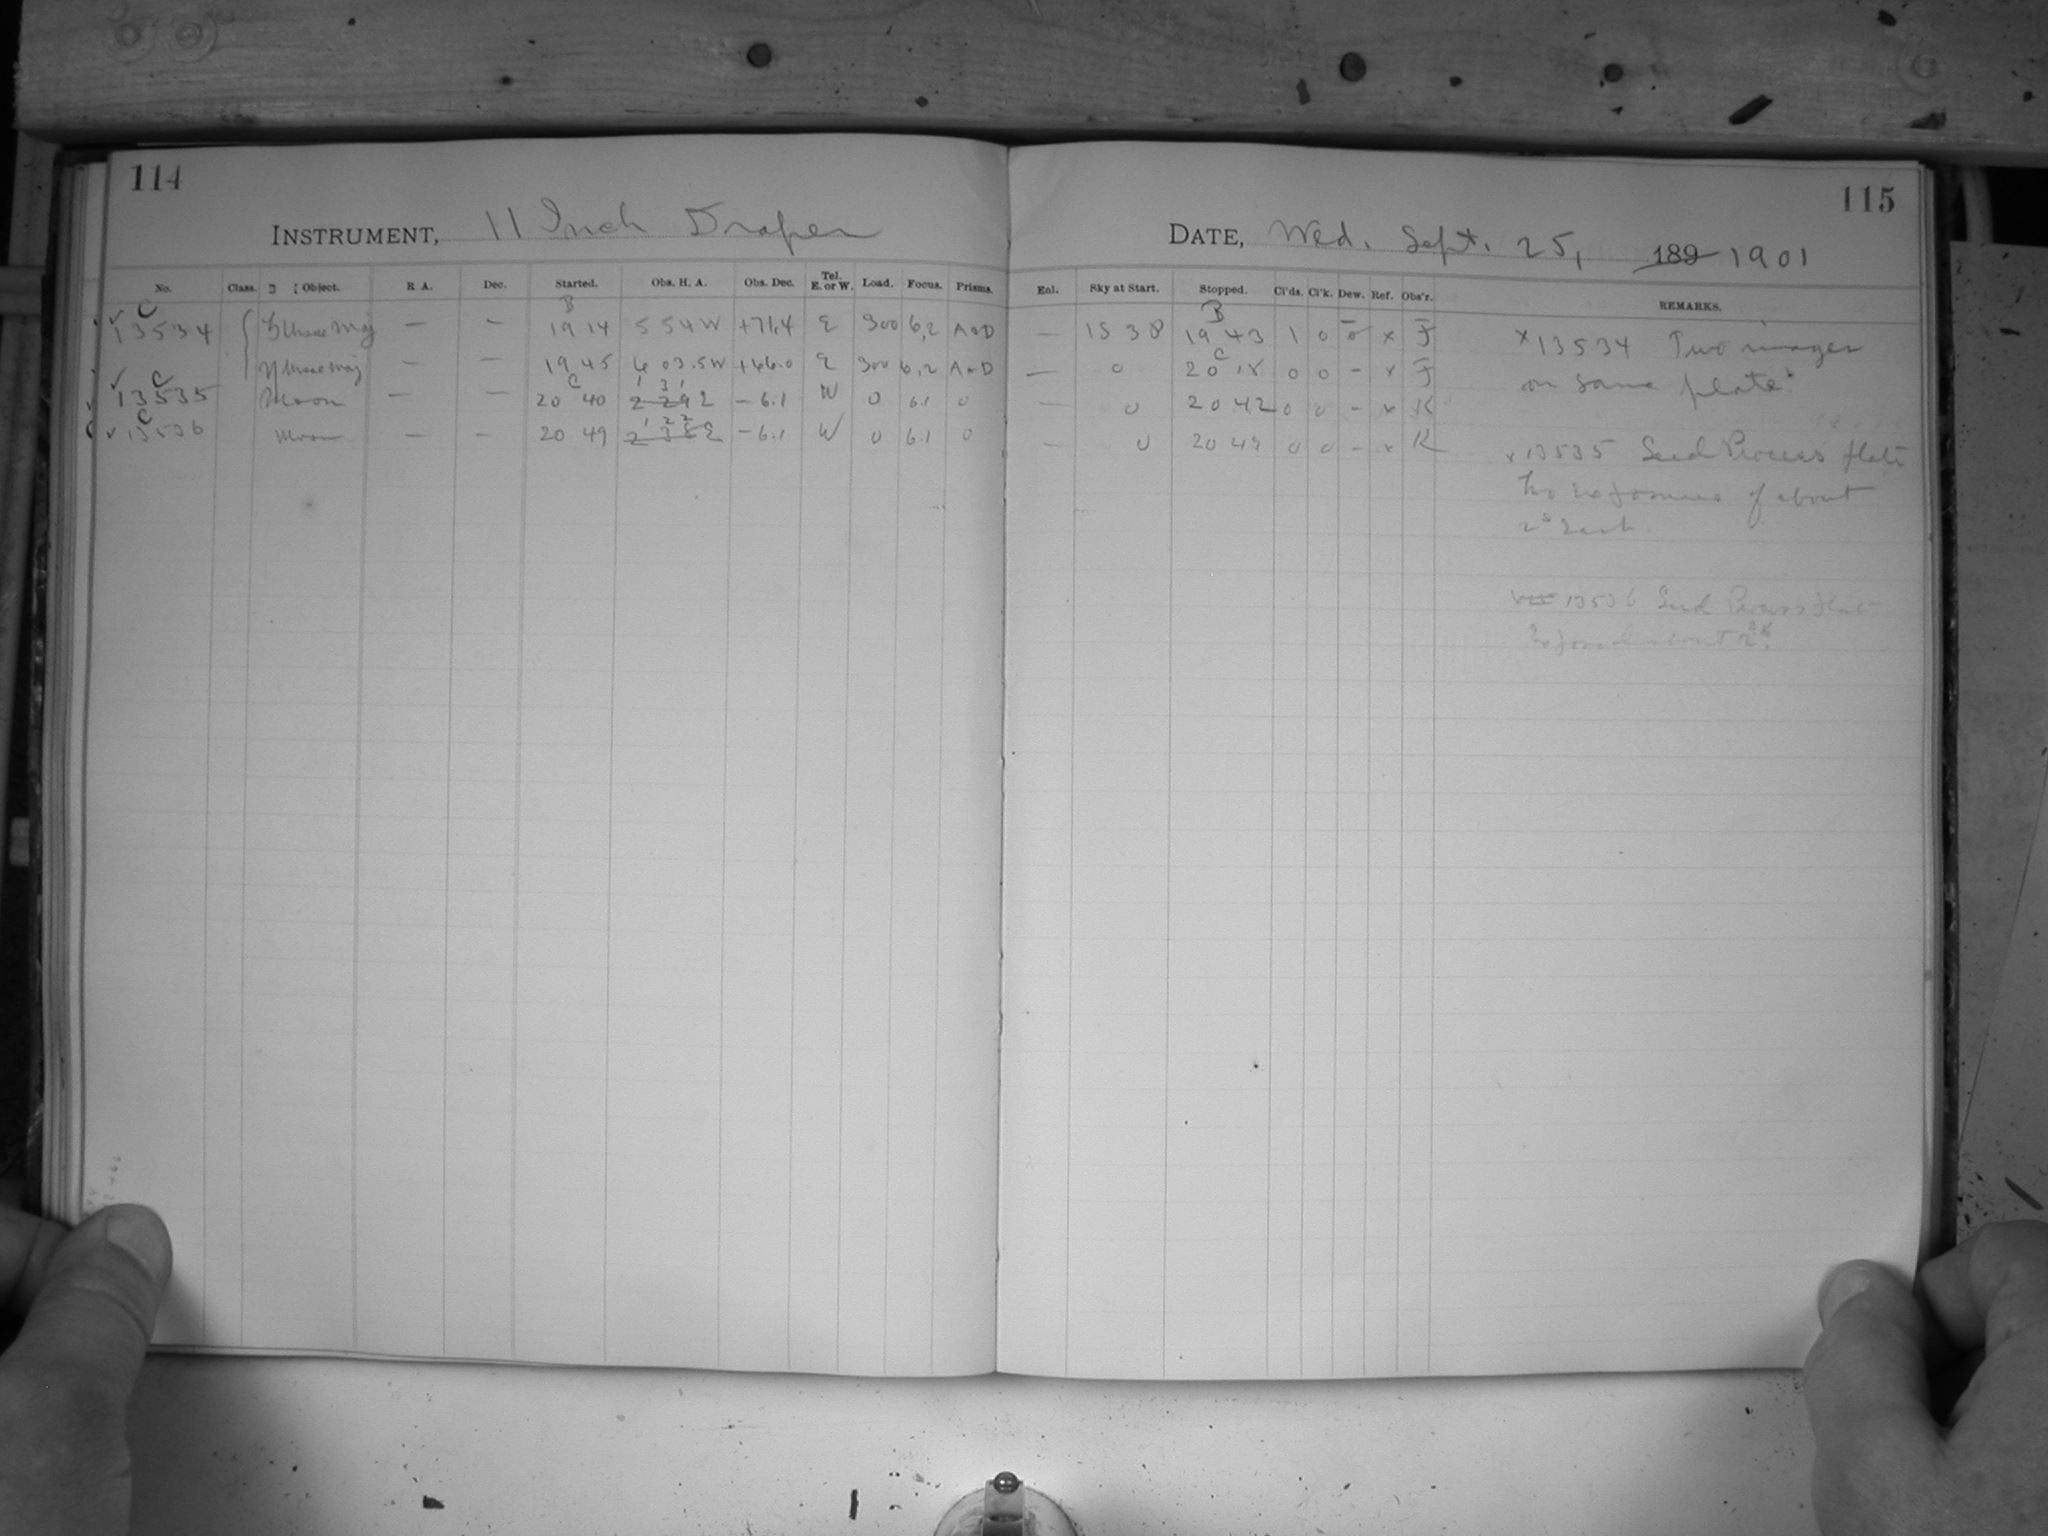 114
INSTRUMENT, 11 Inch Draper
No. Class. Object. R. A. Dec. Started. Obs. H. A. Obs. Dec. Tel. E. or W. Load. Focus. Prisms.
C B
13534 ζ Ursae Maj — — 19 14 5 54 W +71.4 E 300 6.2 A & D
η Ursae Maj — — 19 45 6 03.5 W +46.0 E 300 6.2 A & D
C C 1 31
13535 Moon — — 20 40 2 29 E −6.1 W 0 6.1 0
C 1 22
13536 Moon — — 20 49 −6.1 W 0 6.1 0
115
DATE, Wed. Sept. 25, 189 1901
Enl. Sky at Start. Stopped. Cl'ds. Cl'k. Dew. Ref. Obs'r. REMARKS.
B
— 15 38 19 43 1 0 x F
C
— 0 20 0 0 - x F
— 0 20 42 0 0 - x K
— 0 20 49 0 0 - x K
x 13534 Two images
on same plate.
x 13535 Seed Process plate
Two exposures of about
2s Each.
13536 Seed Process plate
Exposed about 2s.